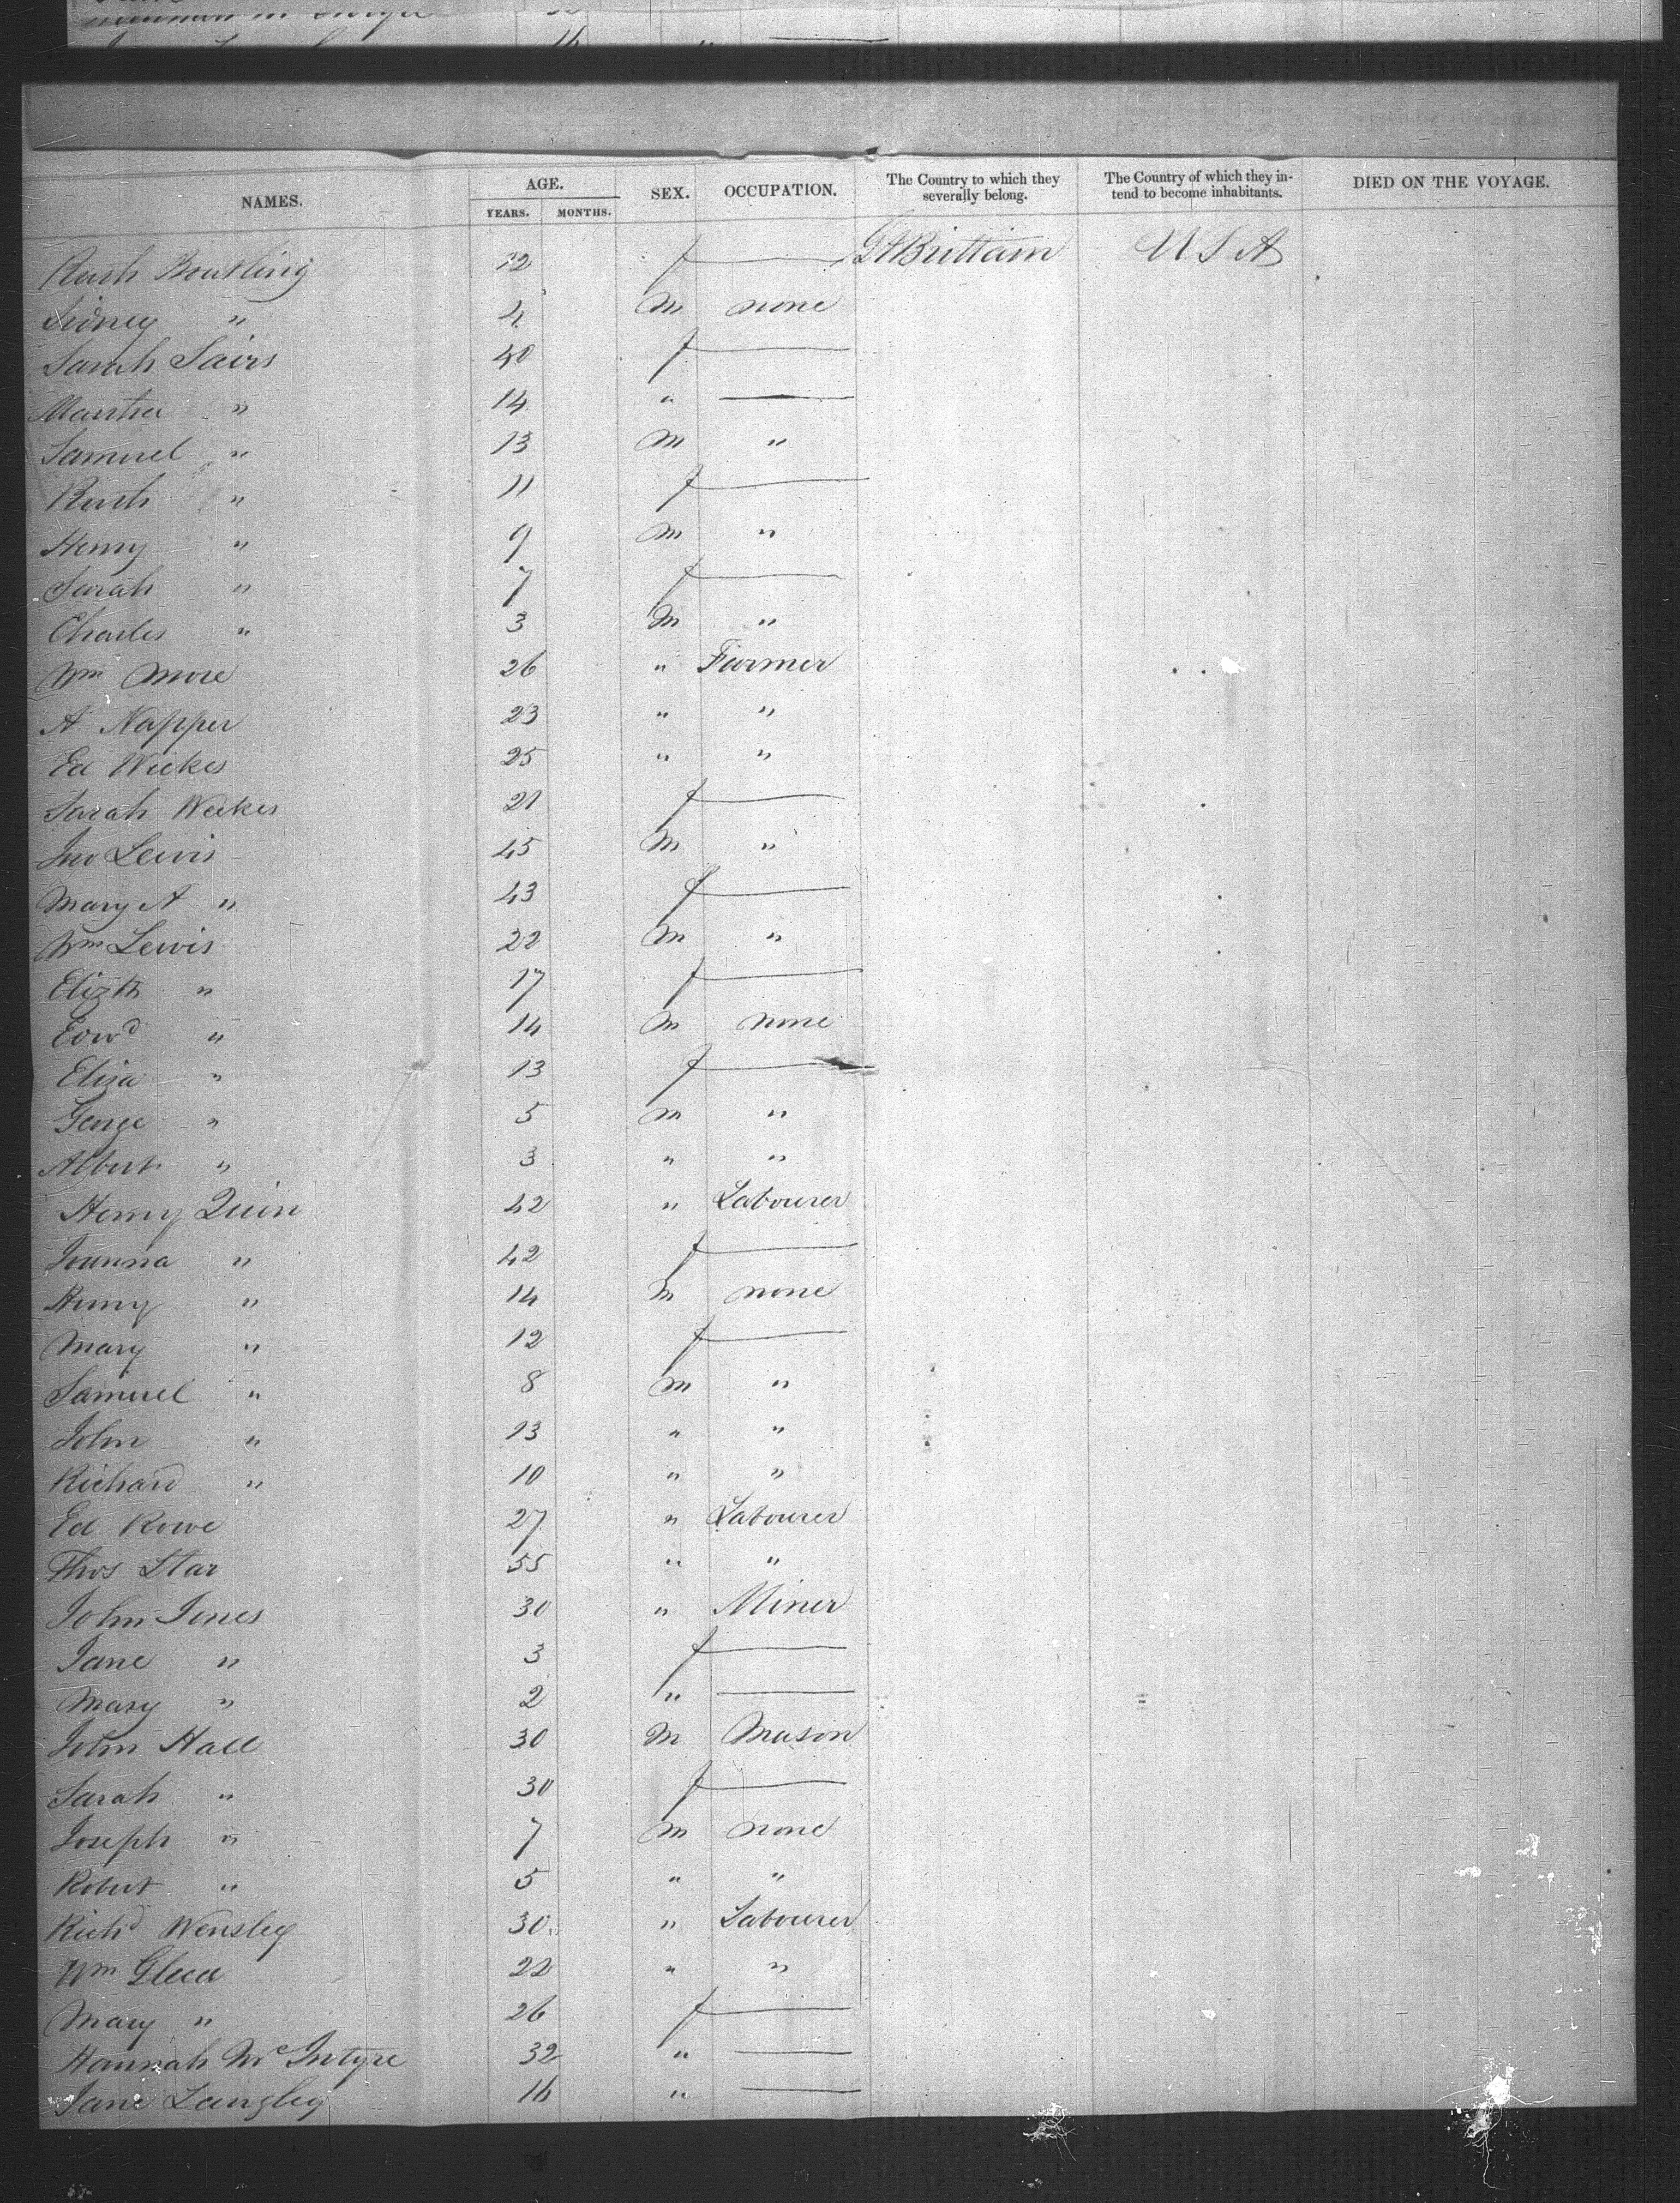 NAMES. AGE. YEARS. MONTHS. SEX. OCCUPATION. The Country to which they severally belong. The Country of which they intend to become inhabitants. DIED ON THE VOYAGE.
Ruth 22 f — Gt Brittain U S A
Sidney " 4 M none
Sarah Sairs 40 f —
Martha " 14 " —
Samuel " 13 M "
Ruth " 11 f —
Henry " 9 M "
Sarah " 7 f —
Charles " 3 M "
Wm More 26 " Farmer
A Napper 23 " "
Ed Weekes 25 " "
Sarah Weekes 21 f —
Jno Lewis 45 M "
Mary A " 43 f —
Wm Lewis 22 M "
Elizth " 17 f —
Edwd " 14 M none
Eliza " 13 f —
George " 5 M "
Albert " 3 " "
Henry Quin 42 " Labourer
Joanna " 42 f —
Henry " 14 M none
Mary " 12 f —
Samuel " 8 M "
John " 13 " "
Richard " 10 " "
Ed Rowe 27 " Labourer
Thos Star 55 " "
John Jones 30 " Miner
Jane " 3 f —
Mary " 2 " —
John Hall 30 M Mason
Sarah " 30 f —
Joseph " 7 M none
Robert " 5 " "
Richd Wensley 30 " Labourer
Wm 22 " "
Mary " 26 f —
Hannah Mc Intyre 32 " —
Jane Langley 16 " —